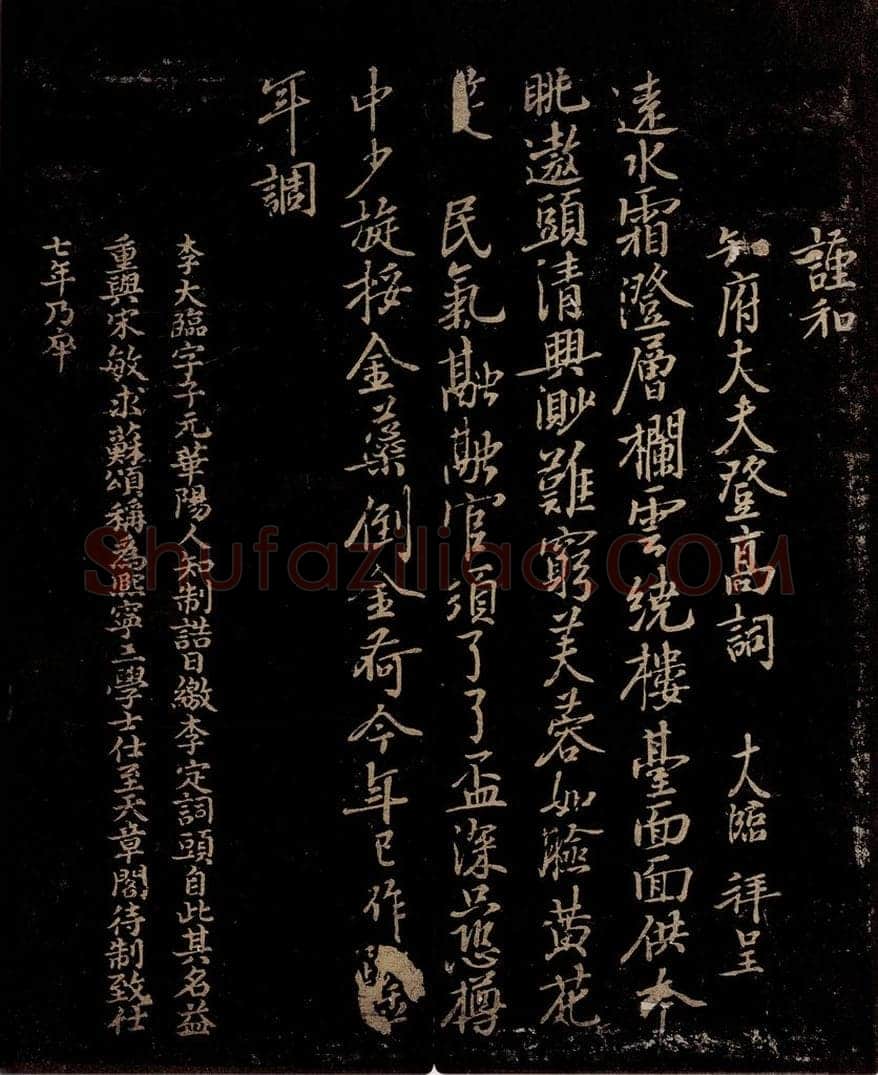 謹和
知府大夫登高詞 大臨 拜呈
遠水霜澄層欄雲繞樓臺面面供
眺遨頭清興渺難窮芙蓉如臉黃花
民氣融融官須了了盃深只恐樽
中少旋挼金蘂倒金荷今年已作
年調
李大臨字子元華陽人知制誥日繳李定詞頭自此其名益
重與宋敏求蘇頌稱為熙寧三學士仕至天章閣待制致仕
七年乃卒
Shufaziliao.COM